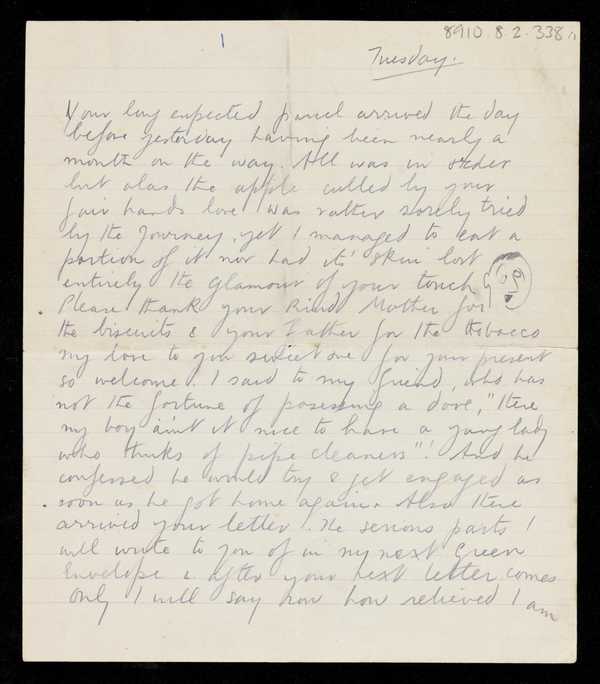 8910.8.2.338 i
1
Tuesday.
Your long expected parcel arrived the day
before yesterday having been nearly a
month on the way. All was in order
but alas the apple culled by your
fair hands love was rather sorely tried
by the journey, yet I managed to eat a
portion of it nor had its' skin lost
entirely the glamour of your touch
Please thank your kind Mother for
the biscuits & your Father for the tobacco
my love to you sweet one for your present
so welcome. I said to my friend, who has
not the fortune of posessing a dove, "There
my boy ain't it nice to have a young lady
who thinks of pipe cleaners"! And he
confessed he would try & get engaged as
soon as he got home again. Also there
arrived your letter. The serious parts I
will write to you of in my next Green
Envelope & after your next letter comes
only I will say now how relieved I am